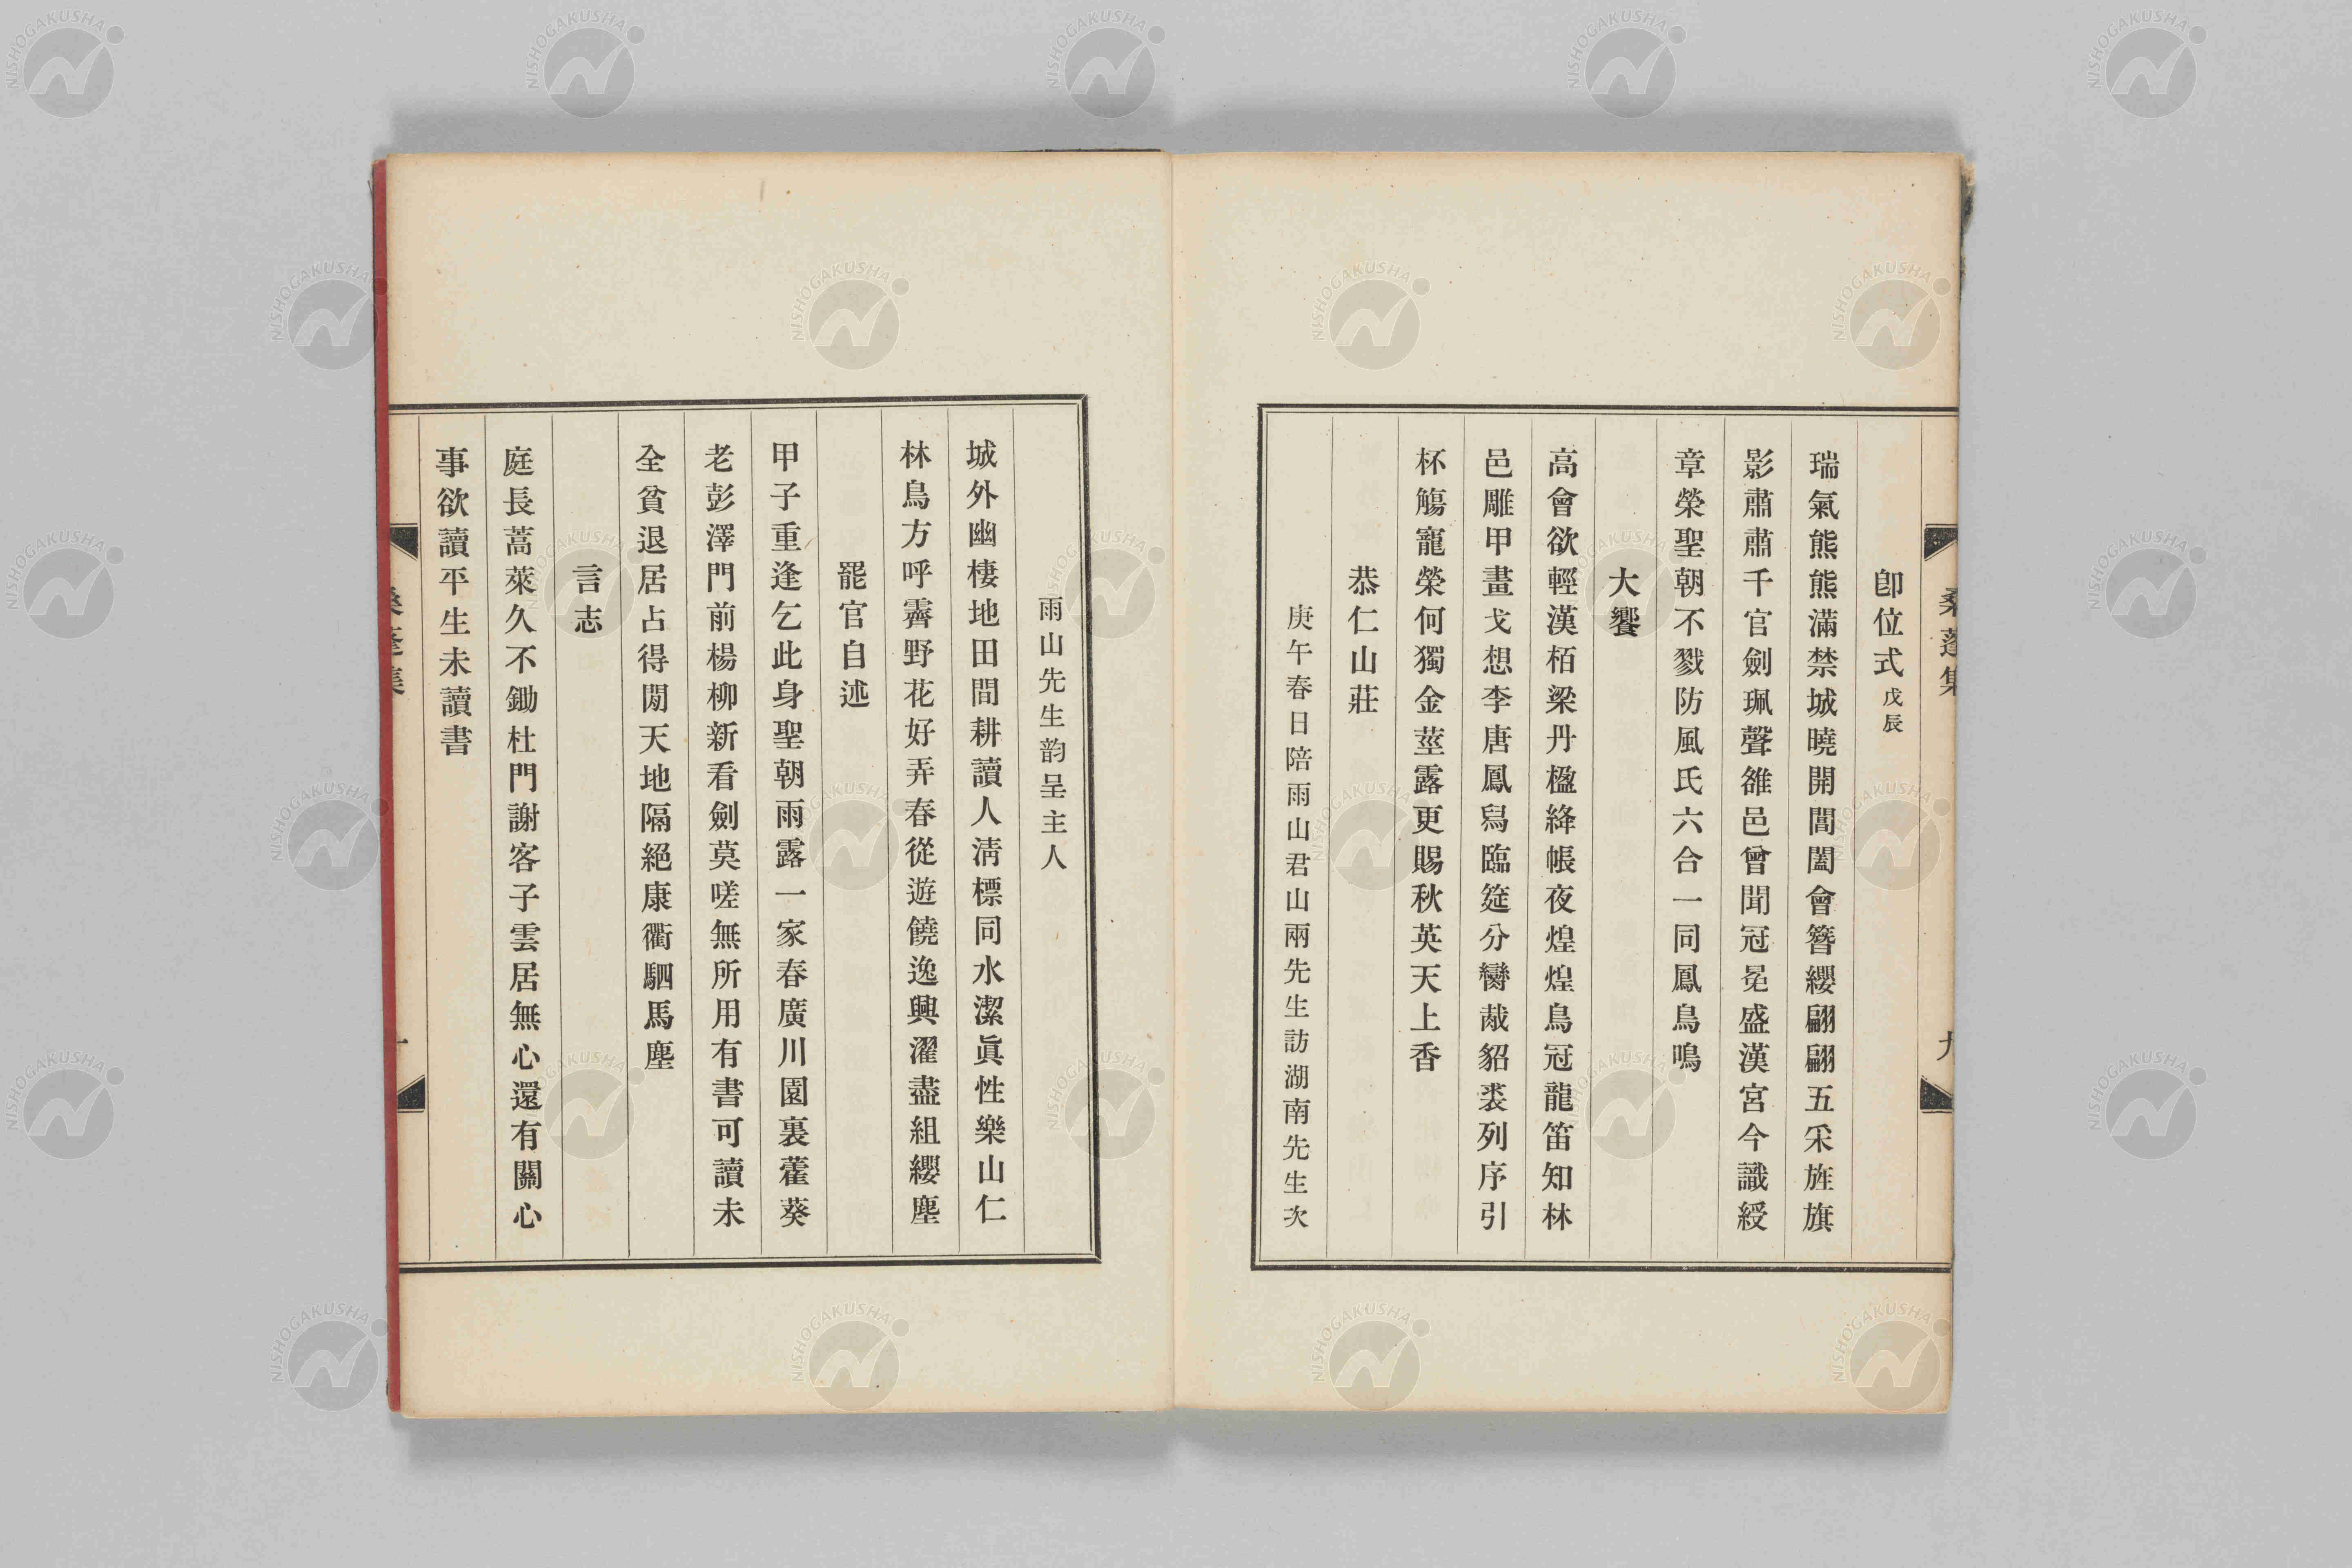 桑蓬集
九
卽位式 戊辰
瑞氣熊熊滿禁城曉開閶闔會簪纓翩翩五采旌旗
影肅肅千官劍珮聲雒邑曾聞冠冕盛漢宮今識綬
章榮聖朝不戮防風氏六合一同鳳鳥鳴
大饗
高會欲輕漢栢梁丹楹絳帳夜煌煌鳥冠龍笛知林
邑雕甲畫戈想李唐鳳舄臨筵分臠胾貂裘列序引
杯觴寵榮何獨金莖露更賜秋英天上香
恭仁山莊
庚午春日陪雨山君山兩先生訪湖南先生次
雨山先生韵呈主人
城外幽棲地田間耕讀人淸標同水潔眞性樂山仁
林鳥方呼霽野花好弄春從遊饒逸興濯盡組纓塵
罷官自述
甲子重逢乞此身聖朝雨露一家春廣川園裏藿葵
老彭澤門前楊柳新看劍莫嗟無所用有書可讀未
全貧退居占得閒天地隔絕康衢駟馬塵
言志
庭長蒿萊久不鋤杜門謝客子雲居無心還有關心
事欲讀平生未讀書
桑蓬集
NISHOGAKUSHA